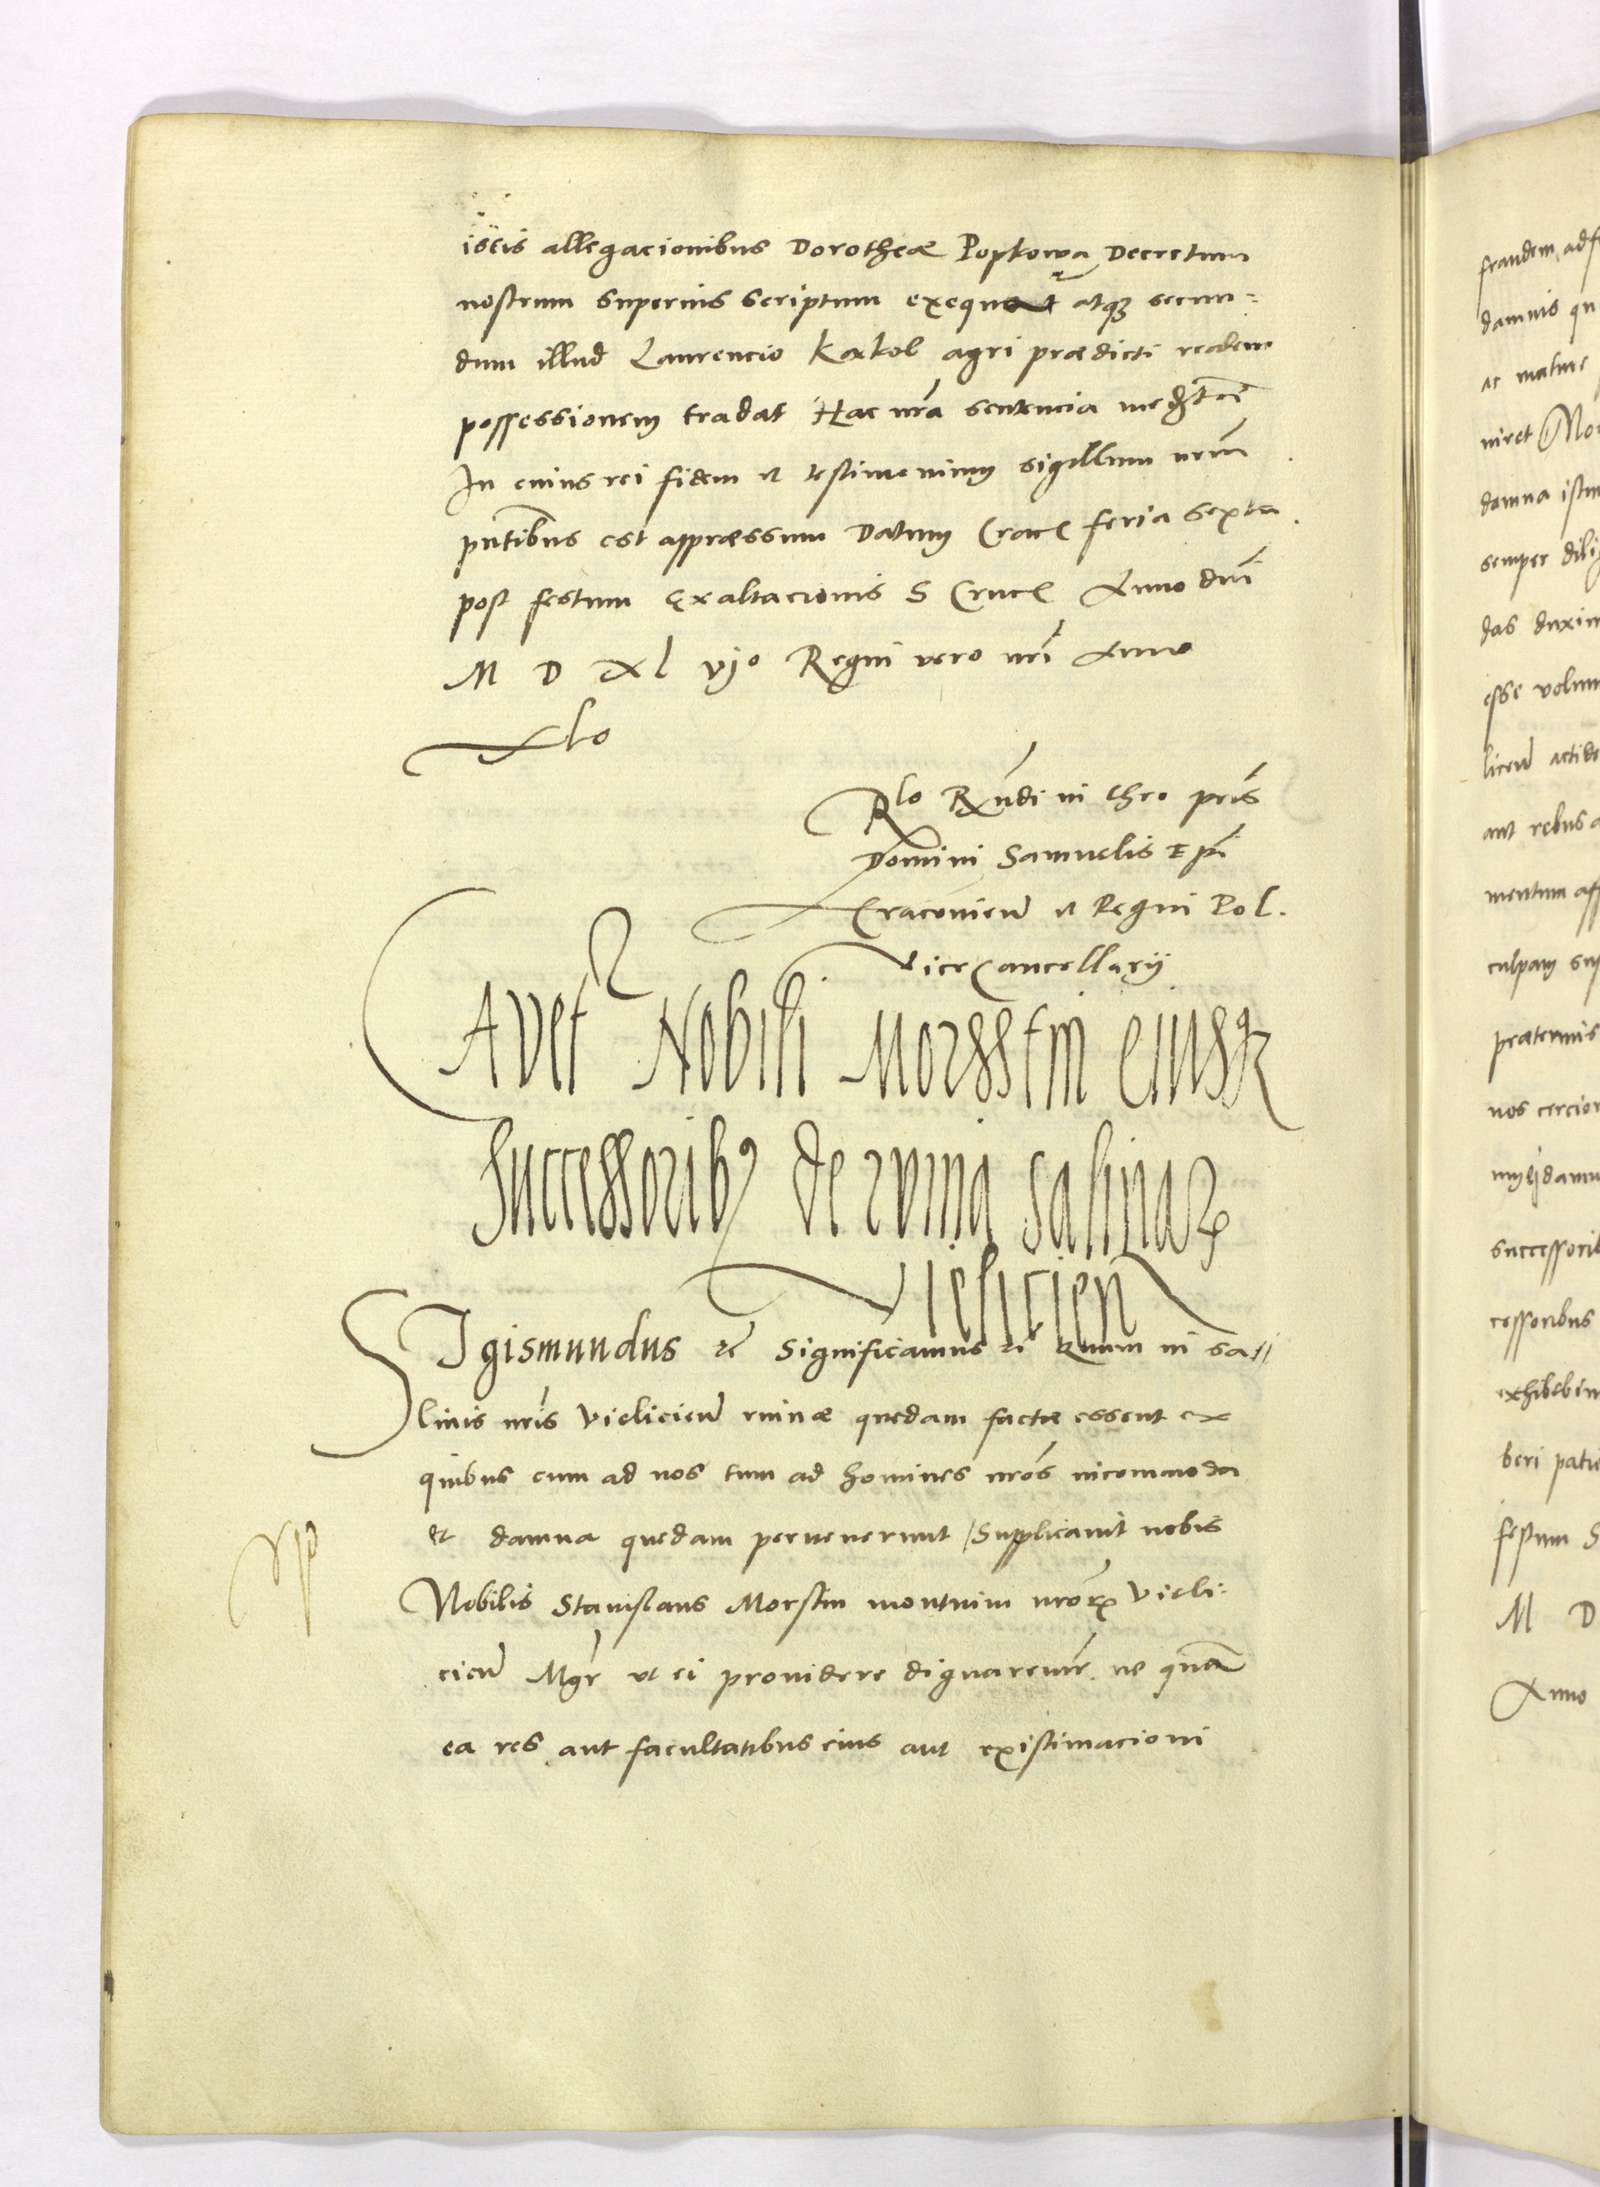 istis allegacionibus Dorotheæ Poptowa Decretum
nostrum superius scriptum exequat atq3 secun=
dum illud Laurencio Kaxtol agri prædicti realem
possessionem tradat Hac nr̃a sentencia
In cuius rei fidem et testimonium sigillum nr̃m
pn̄tibus est appræssum Datum Crac feria sexta
post festum Exaltacionis S Cruc Anno dn̄i
M D Xl vjo Regni vero nr̃i Anno
xlo
Rlo Rn̄di in chro pr̃is
Domini Samuelis Ep̄i
Cracovien̄ et Regni Pol.
Vicecancellarij
Cavet Nobili Morsstin eiusq3
successorib9 de ruina salinar
Vielicien
SIgismundus etc̄ Significamus etc̄ Quum in sa//
linis nr̃is Vielicien̄ ruinæ quedam factæ essent ex
quibus cum ad nos tum ad homines nr̃os incommoda
et damna quedam pervenerunt / Supplicauit nobis
Nobilis Stanislaus Morstin montium nr̃or Vieli=
cien̄ Mgr̄ ut ei providere dignaremr̄ ne quā
ea res aut facultatibus eius aut existimacioni
fraudem adf
damnis qu
ac mature
niret Mo
domna istiu
semper dili
das duxim
esse volum
licen̄ attide
aut rebus a
mentum aff
culpam su
prætermis
nos cercior
successorib
cessoribus
exhibebim
beri patie
festum S
M D
Anno